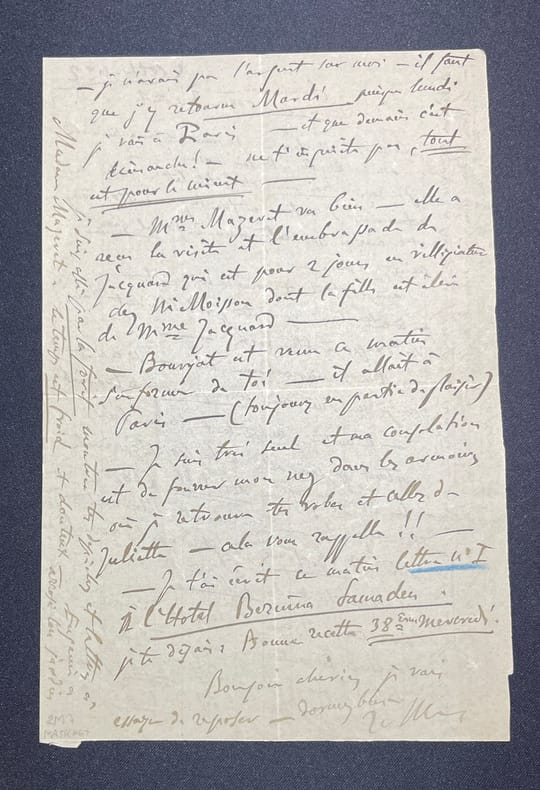 — je n'avais pas l'argent sur moi — il faut
que j'y retourne Mardi puisque lundi
je vais à Paris — et que demain c'est
dimanche! — ne t'inquiète pas, tout
est pour le mieux —
— Mme Mazerat va bien — elle a
reçu la visite et l'embrassade de
Jacquard qui est pour 2 jours en villégiature
chez Moisson dont la fille est élève
de Mme Jacquard —
— Bourjat est venu ce matin
s'informer de toi — il allait à
Paris — (toujours en partie de plaisir)
— Je suis très seul et ma consolation
est de fourrer mon nez dans les armoires
où je retrouve tes robes et celles de
Juliette — cela vous rappelle!! —
— Je t'ai écrit ce matin lettre n° I
à l'Hotel Samaden.
je te disais: Bonne recette 38 Mercredi.
Bonjour chéries je vais
essayer de reposer — dormez bien
je suis allé par la forêt
Madame Mazerat. le temps est froid et douteux